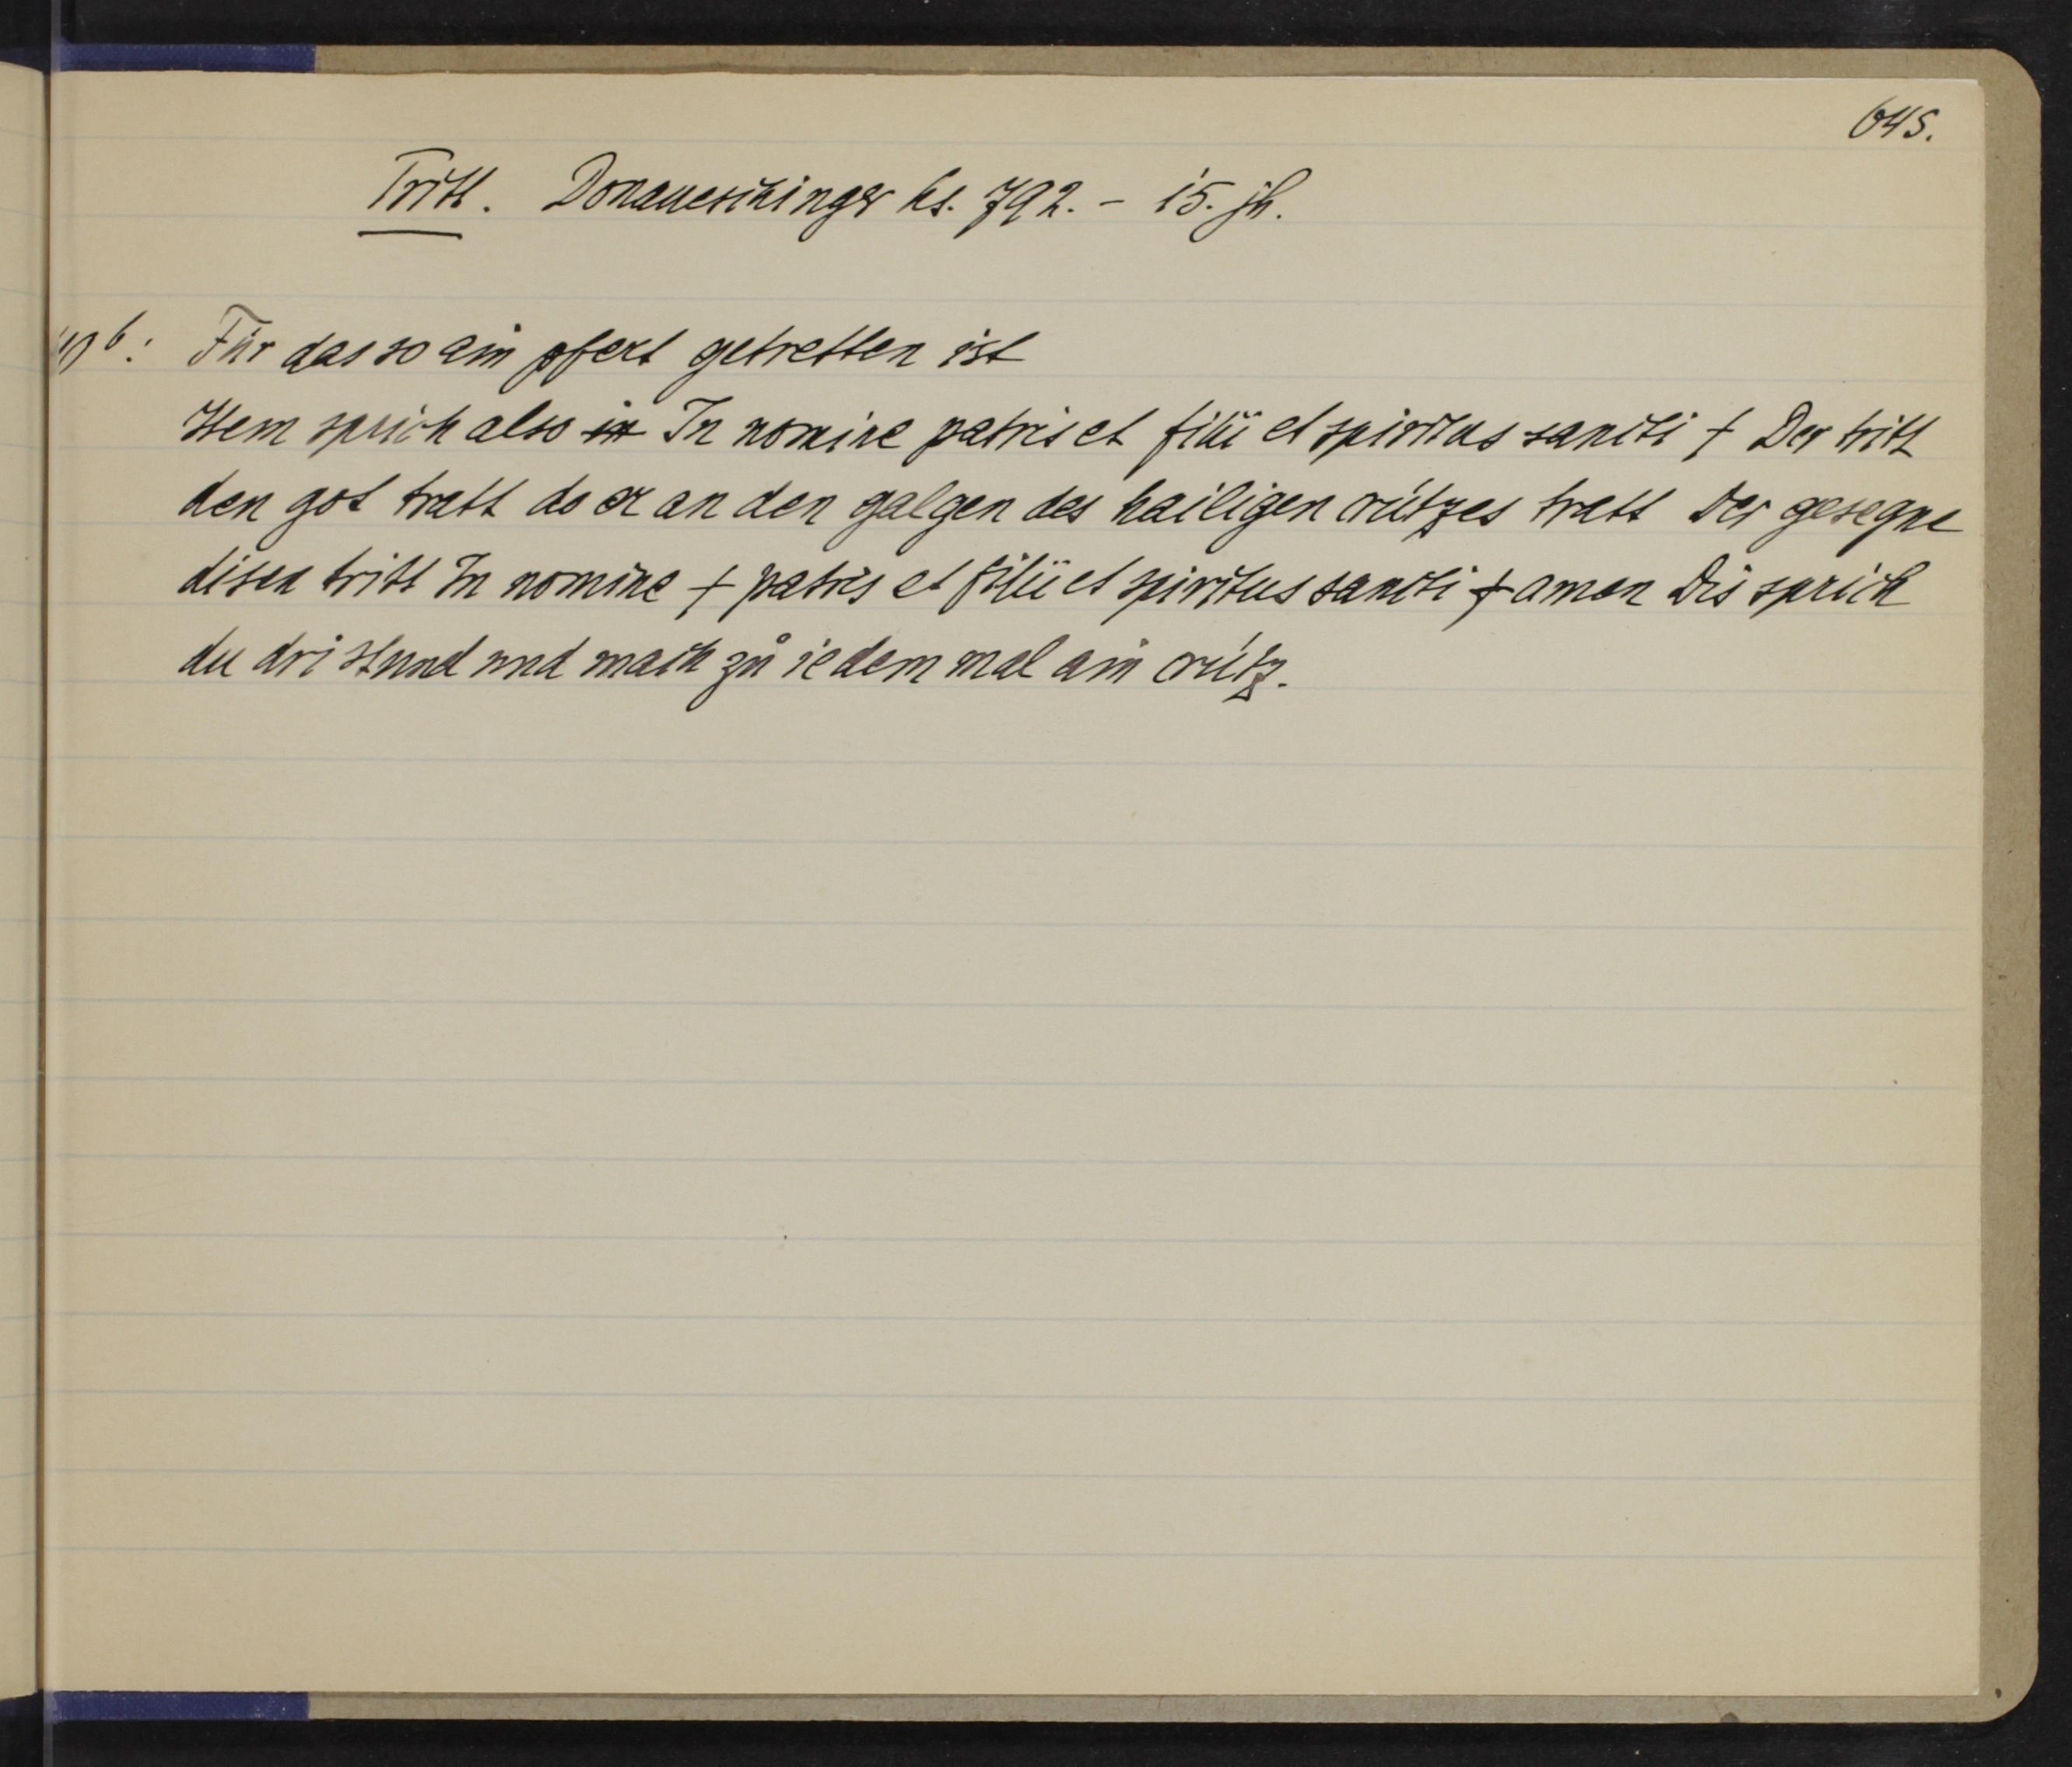 645.
Tritt. Donaueschinger hs. 792. - 15. jh.
b: Für das so ain pfert getretten ist
Item sprich also in In nomine patris et filii et spiritus sancti + Der tritt
den got tratt do er an den galgen des hailigen crützes tratt Der gesegne
disen tritt In nomine + patris et filii et spiritus sancti + amen Dis sprich
du dri stund und mach zů iedem mal ain crütz.